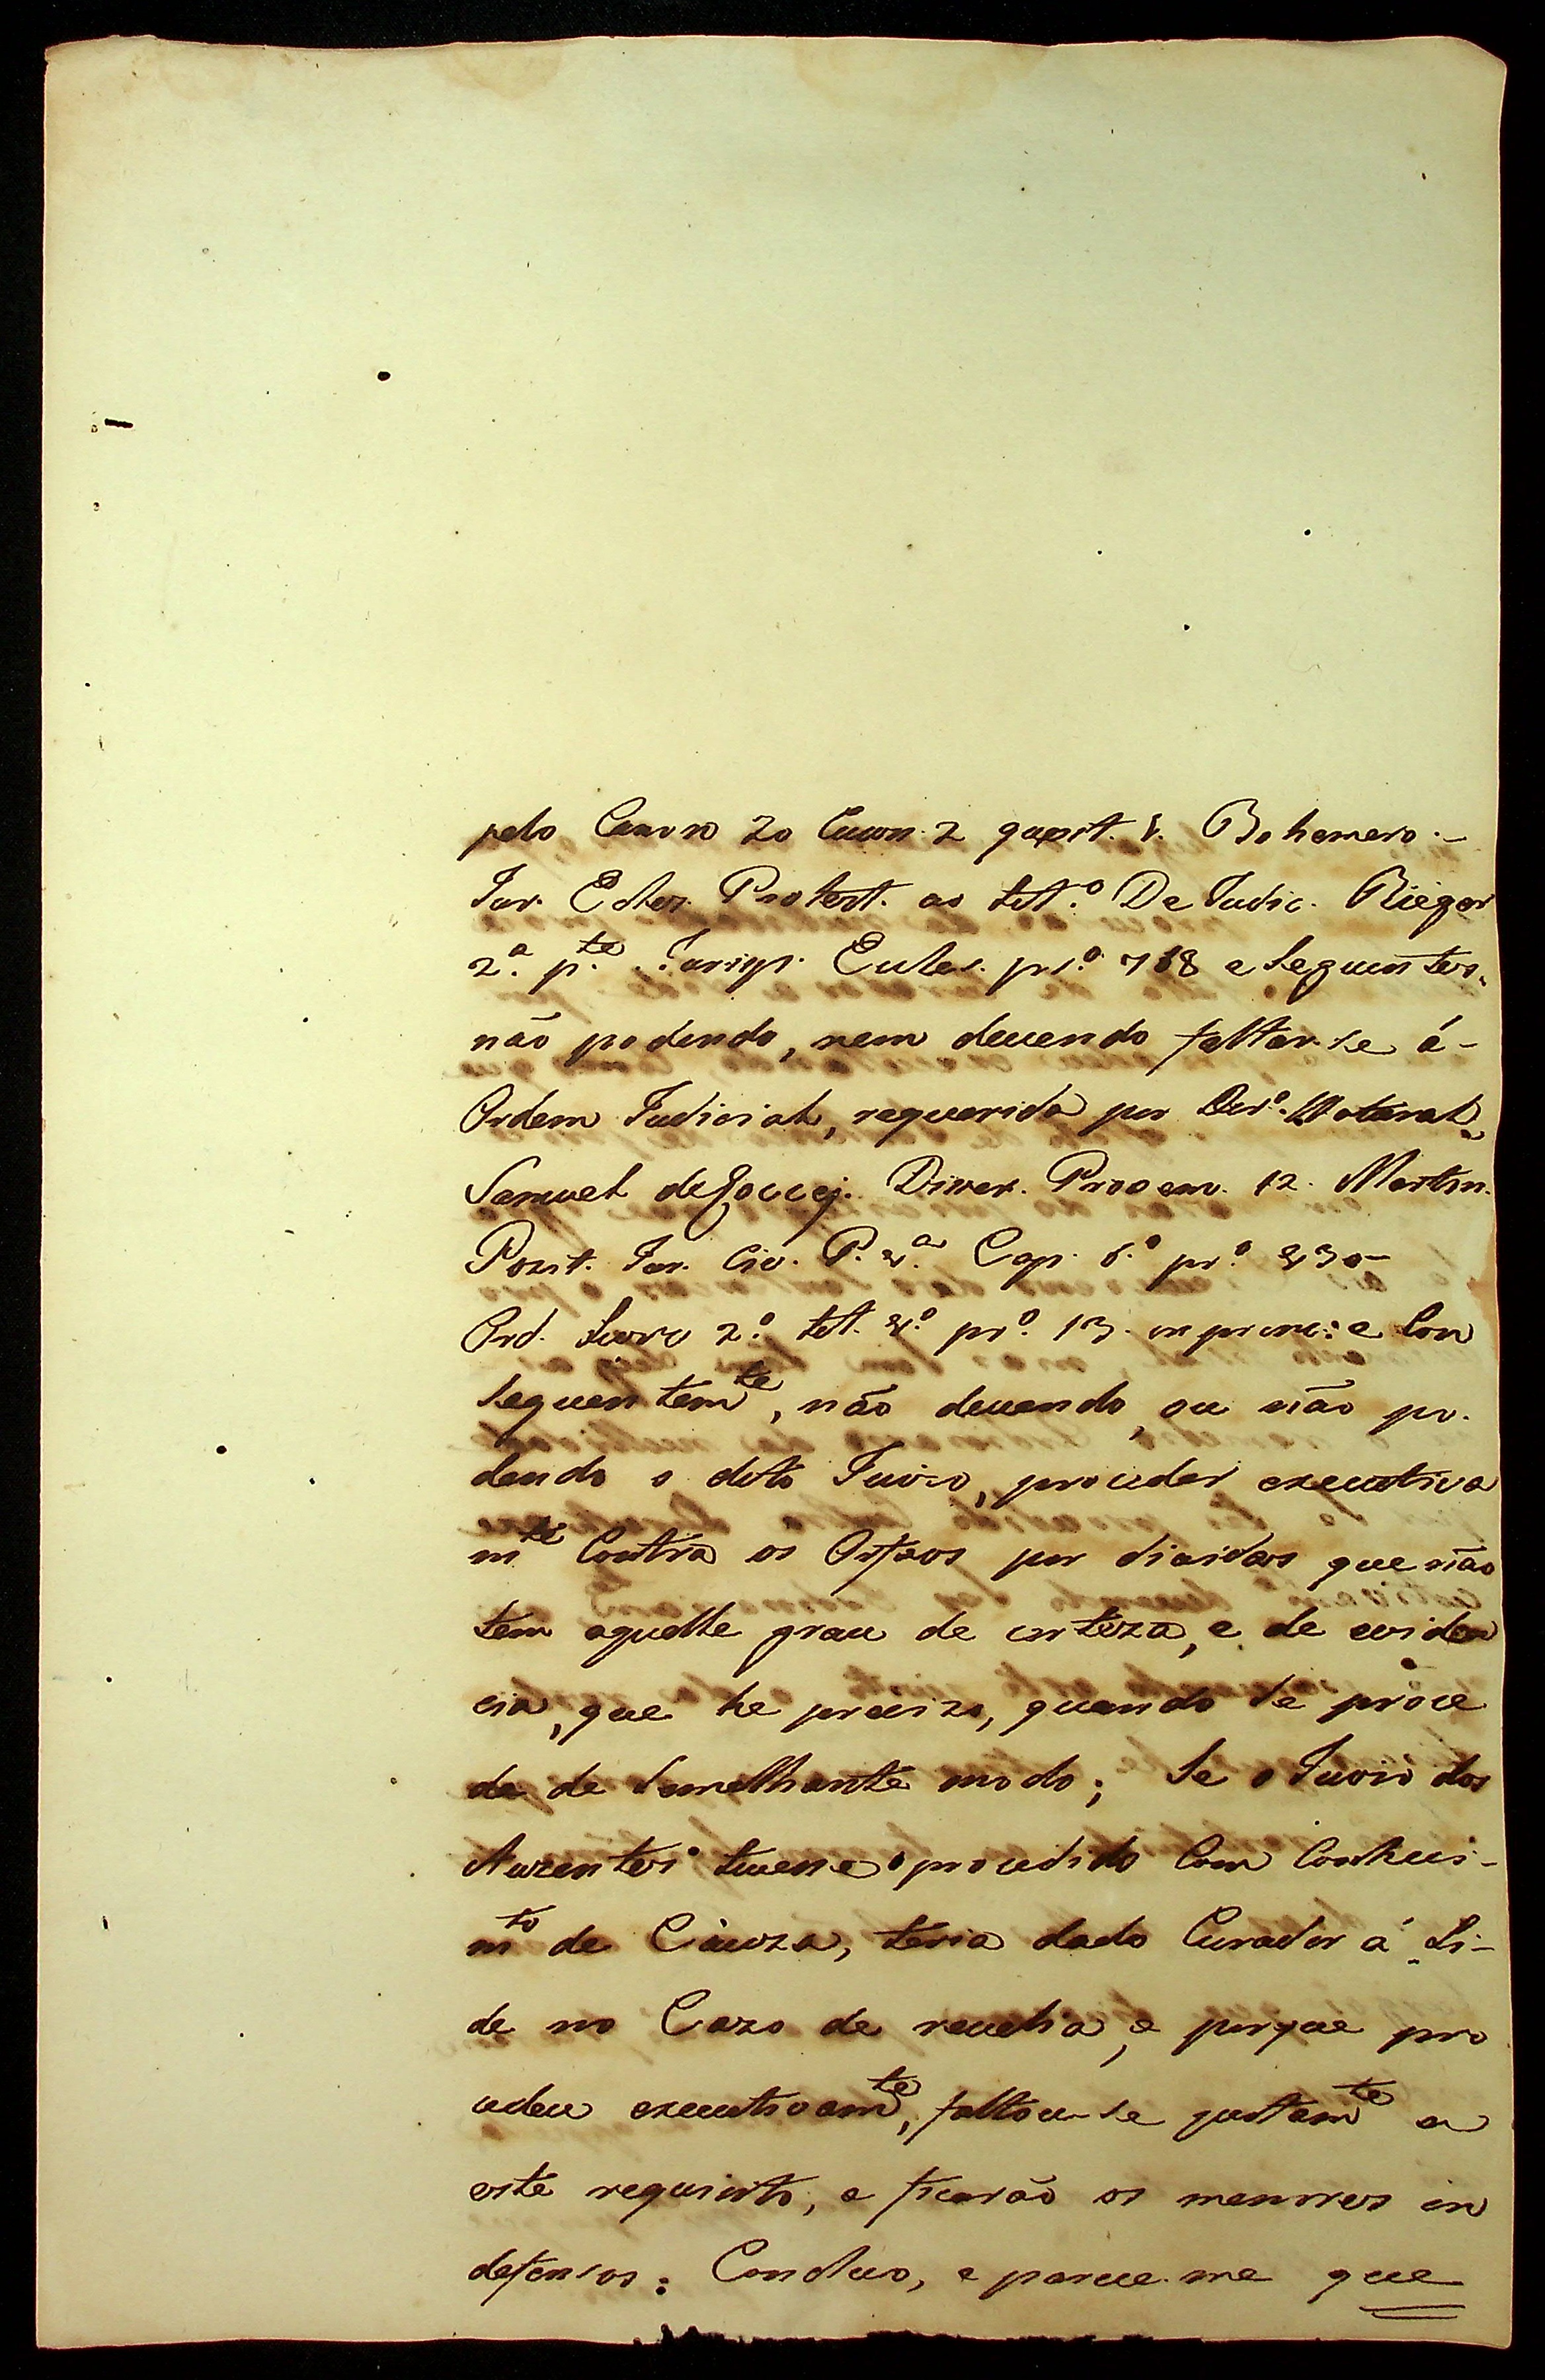 pelo Canon 20 Cuum 2 quest. 1. Bohemero.-
Jur. Ecles. Protest. ao tit.º De Judic. Rieger
2.ª p.te Jurisp. Ecles. pr.º 718 e seguintes.
não podendo, nem devendo faltar-se á-
Ordem Judicial, requerida por Dir.º Natural.
Samuel de Coccej. Disser. Prooem. 12. Martin.
Pozit. Jur. Civ. P. 2.ª Cap. 6.º pr.º 230-
Ord. Livro 2.º tit. pr.º 13. in princ: e Con
sequentem.te, não devendo, ou não po-
dendo o dito Juizo, proceder executiva
m.te Contra os Orfaos por dividas que não
tem aquelle grau de certeza, e de eviden
cia, que he precizo, quando se proce
de de Semelhante modo; Se o Juizo dos
Auzentes tivese procedido Com Conheci-
m.to de Cauza, teria dado Curador á Li-
de no Cazo de revelia, e porque pro
cedeu executivam.te, faltou-se justam.te a
este requisito, e ficarão os menores in
defensos: Concluo, e parece-me que